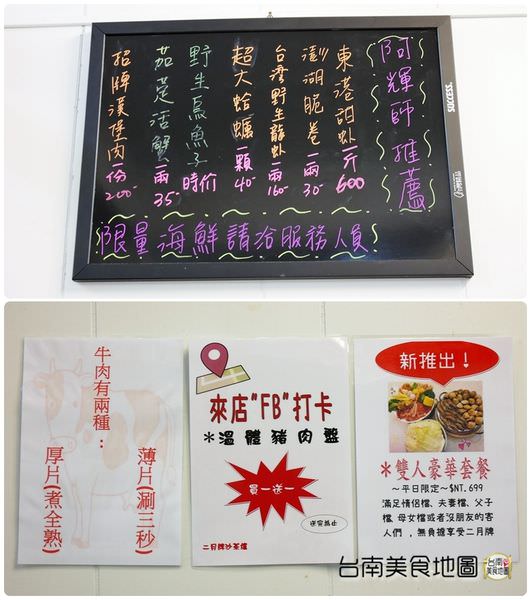 阿輝師推薦
東港甜虾一斤600
澎湖脆卷一兩30
台灣野生龍虾一兩160
超大蛤蠣一顆40
野生烏魚子時价
茄萣活蟹一兩35
招牌漢堡肉一份200
限量海鮮請洽服務人員
SUCCESS.
牛肉有兩種：
薄片(涮三秒)
厚片(煮全熟)
來店"FB"打卡
*溫體豬肉盤
買一送一
送完為止
二月牌沙茶爐
新推出！
*雙人豪華套餐
～平日限定～$NT.699
滿足情侶檔、夫妻檔、父子
檔、母女檔或者沒朋友的客
人們，無負擔享受二月牌
台南美食地圖
台南
美食地圖